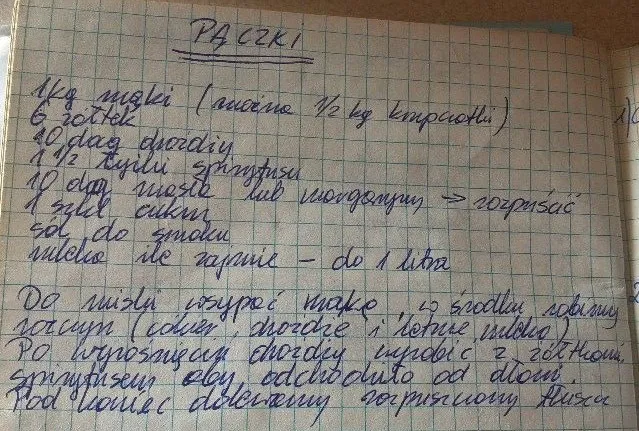 PĄCZKI
1kg mąki (można 1/2 kg krupczatki)
6 żółtek
10 dag drożdży
1 1/2 łyżki spirytusu
10 dag masła lub margaryny → rozpuścić
1 szkl cukru
sól do smaku
mleko ile zajmie – do 1 litra
Do miski wsypać mąkę, w środku robimy
rozczyn (cukier, drożdże i letnie mleko)
Po wyrośnięciu drożdży wyrobić z żółtkami,
spirytusem aby odchodziło od dłoni.
Pod koniec dolewamy rozpuszczony tłuszcz